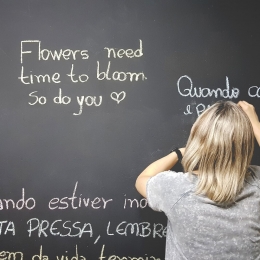 Flowers need
time to bloom.
So do you ♡
Quando
e
ando estiver
TA PRESSA, LEMBRE
em da vida